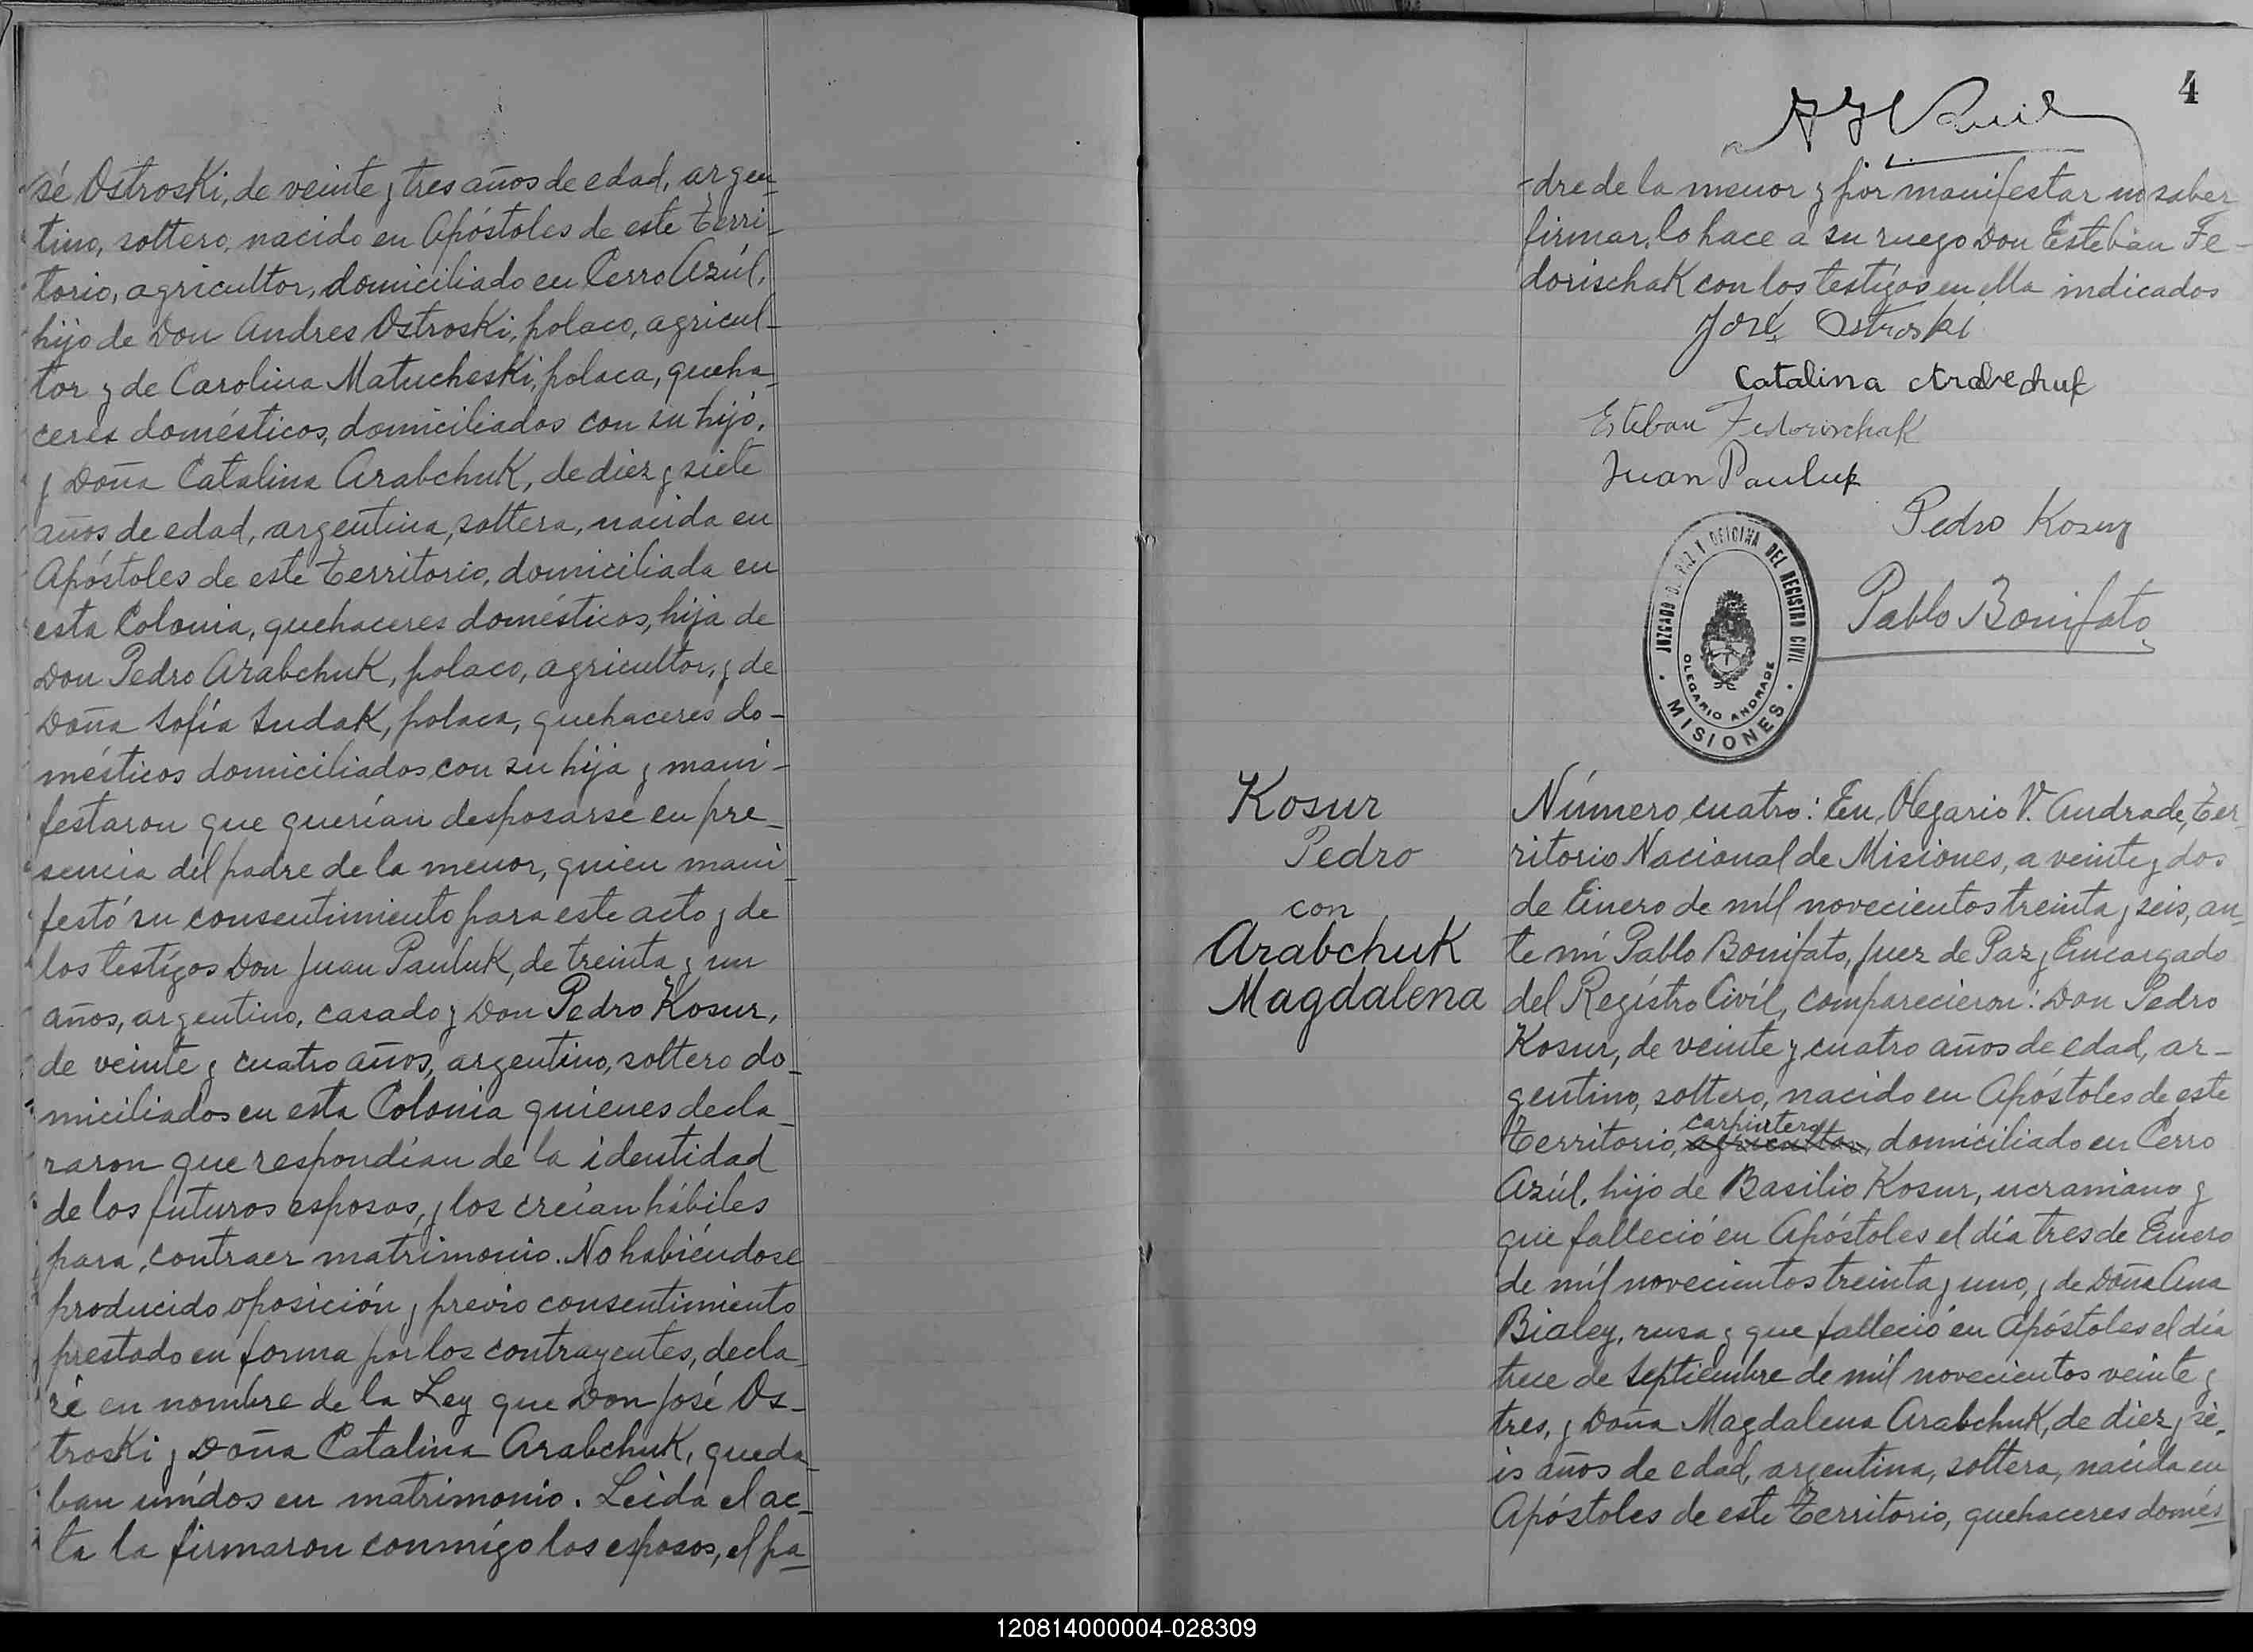 sé Ostroski, de veinte y tres años de edad, argen-
tino, soltero, nacido en Apóstoles de este Terri-
torio, agricultor, domiciliado en Cerro Azúl,
hijo de Don Andres Ostroski, polaco, agricul-
tor y de Carolina Matucheski, polaca, queha-
ceres domésticos, domiciliados con su hijo,
y Doña Catalina Arabchuk, de diez y siete
años de edad, argentina, soltera, nacida en
Apóstoles de este Territorio, domiciliada en
esta Colonia, quehaceres domésticos, hija de
Don Pedro Arabchuk, polaco, agricultor, y de
Doña Sofía Sudak, polaca, quehaceres do-
mésticos domiciliados con su hija y mani-
festaron que querían desposarse en pre-
sencia del padre de la menor, quien mani-
festó su consentimiento para este acto y de
los testígos Don Juan Pauluk, de treinta y un
años, argentino, casado y Don Pedro Kosur,
de veinte y cuatro años, argentino, soltero do-
miciliados en esta Colonia quienes decla-
raron que respondían de la identidad
de los futuros esposos, y los creían hábiles
para contraer matrimonio. No habiéndose
producido oposición y previo consentimiento
prestado en forma por los contrayentes, decla-
ré en nombre de la Ley que Don José Os-
troski y Doña Catalina Arabchuk, queda-
ban unídos en matrimonio. Leída el ac-
ta la firmaron conmígo los esposos, el pa-
4
-dre de la menor y por manifestar no saber
firmar, lo hace a su ruego Don Esteban Fe-
dorischak con los testígos en ella indicados
José Ostroski
Catalina Arabechuk
Esteban Fedorischak
Juan Pauluk
Pedro Kosur
Pablo Bonifato
JUZGADO DE PAZ Y OFICINA DEL REGISTRO CIVIL
OLEGARIO ANDRADE
MISIONES
Kosur
Pedro
con
Arabchuk
Magdalena
Número cuatro: En Olegario V. Andrade, Ter-
ritorio Nacional de Misiones, a veinte y dos
de Enero de míl novecientos treinta y seis, an-
te mí Pablo Bonifato, Juez de Paz y Encargado
del Regístro Civíl, comparecieron: Don Pedro
Kosur, de veinte y cuatro años de edad, ar-
gentino, soltero, nacido en Apóstoles de este
carpintero
Territorio, agricultor, domiciliado en Cerro
Azúl, hijo de Basilio Kosur, ucraniano y
que falleció en Apóstoles el día tres de Enero
de míl novecientos treinta y uno, y de Doña Ana
Bialey, rusa y que falleció en Apóstoles el día
trece de Septiembre de míl novecientos veinte y
tres, y Doña Magdalena Arabchuk, de diez y se-
is años de edad, argentina, soltera, nacida en
Apóstoles de este Territorio, quehaceres domés
120814000004-028309